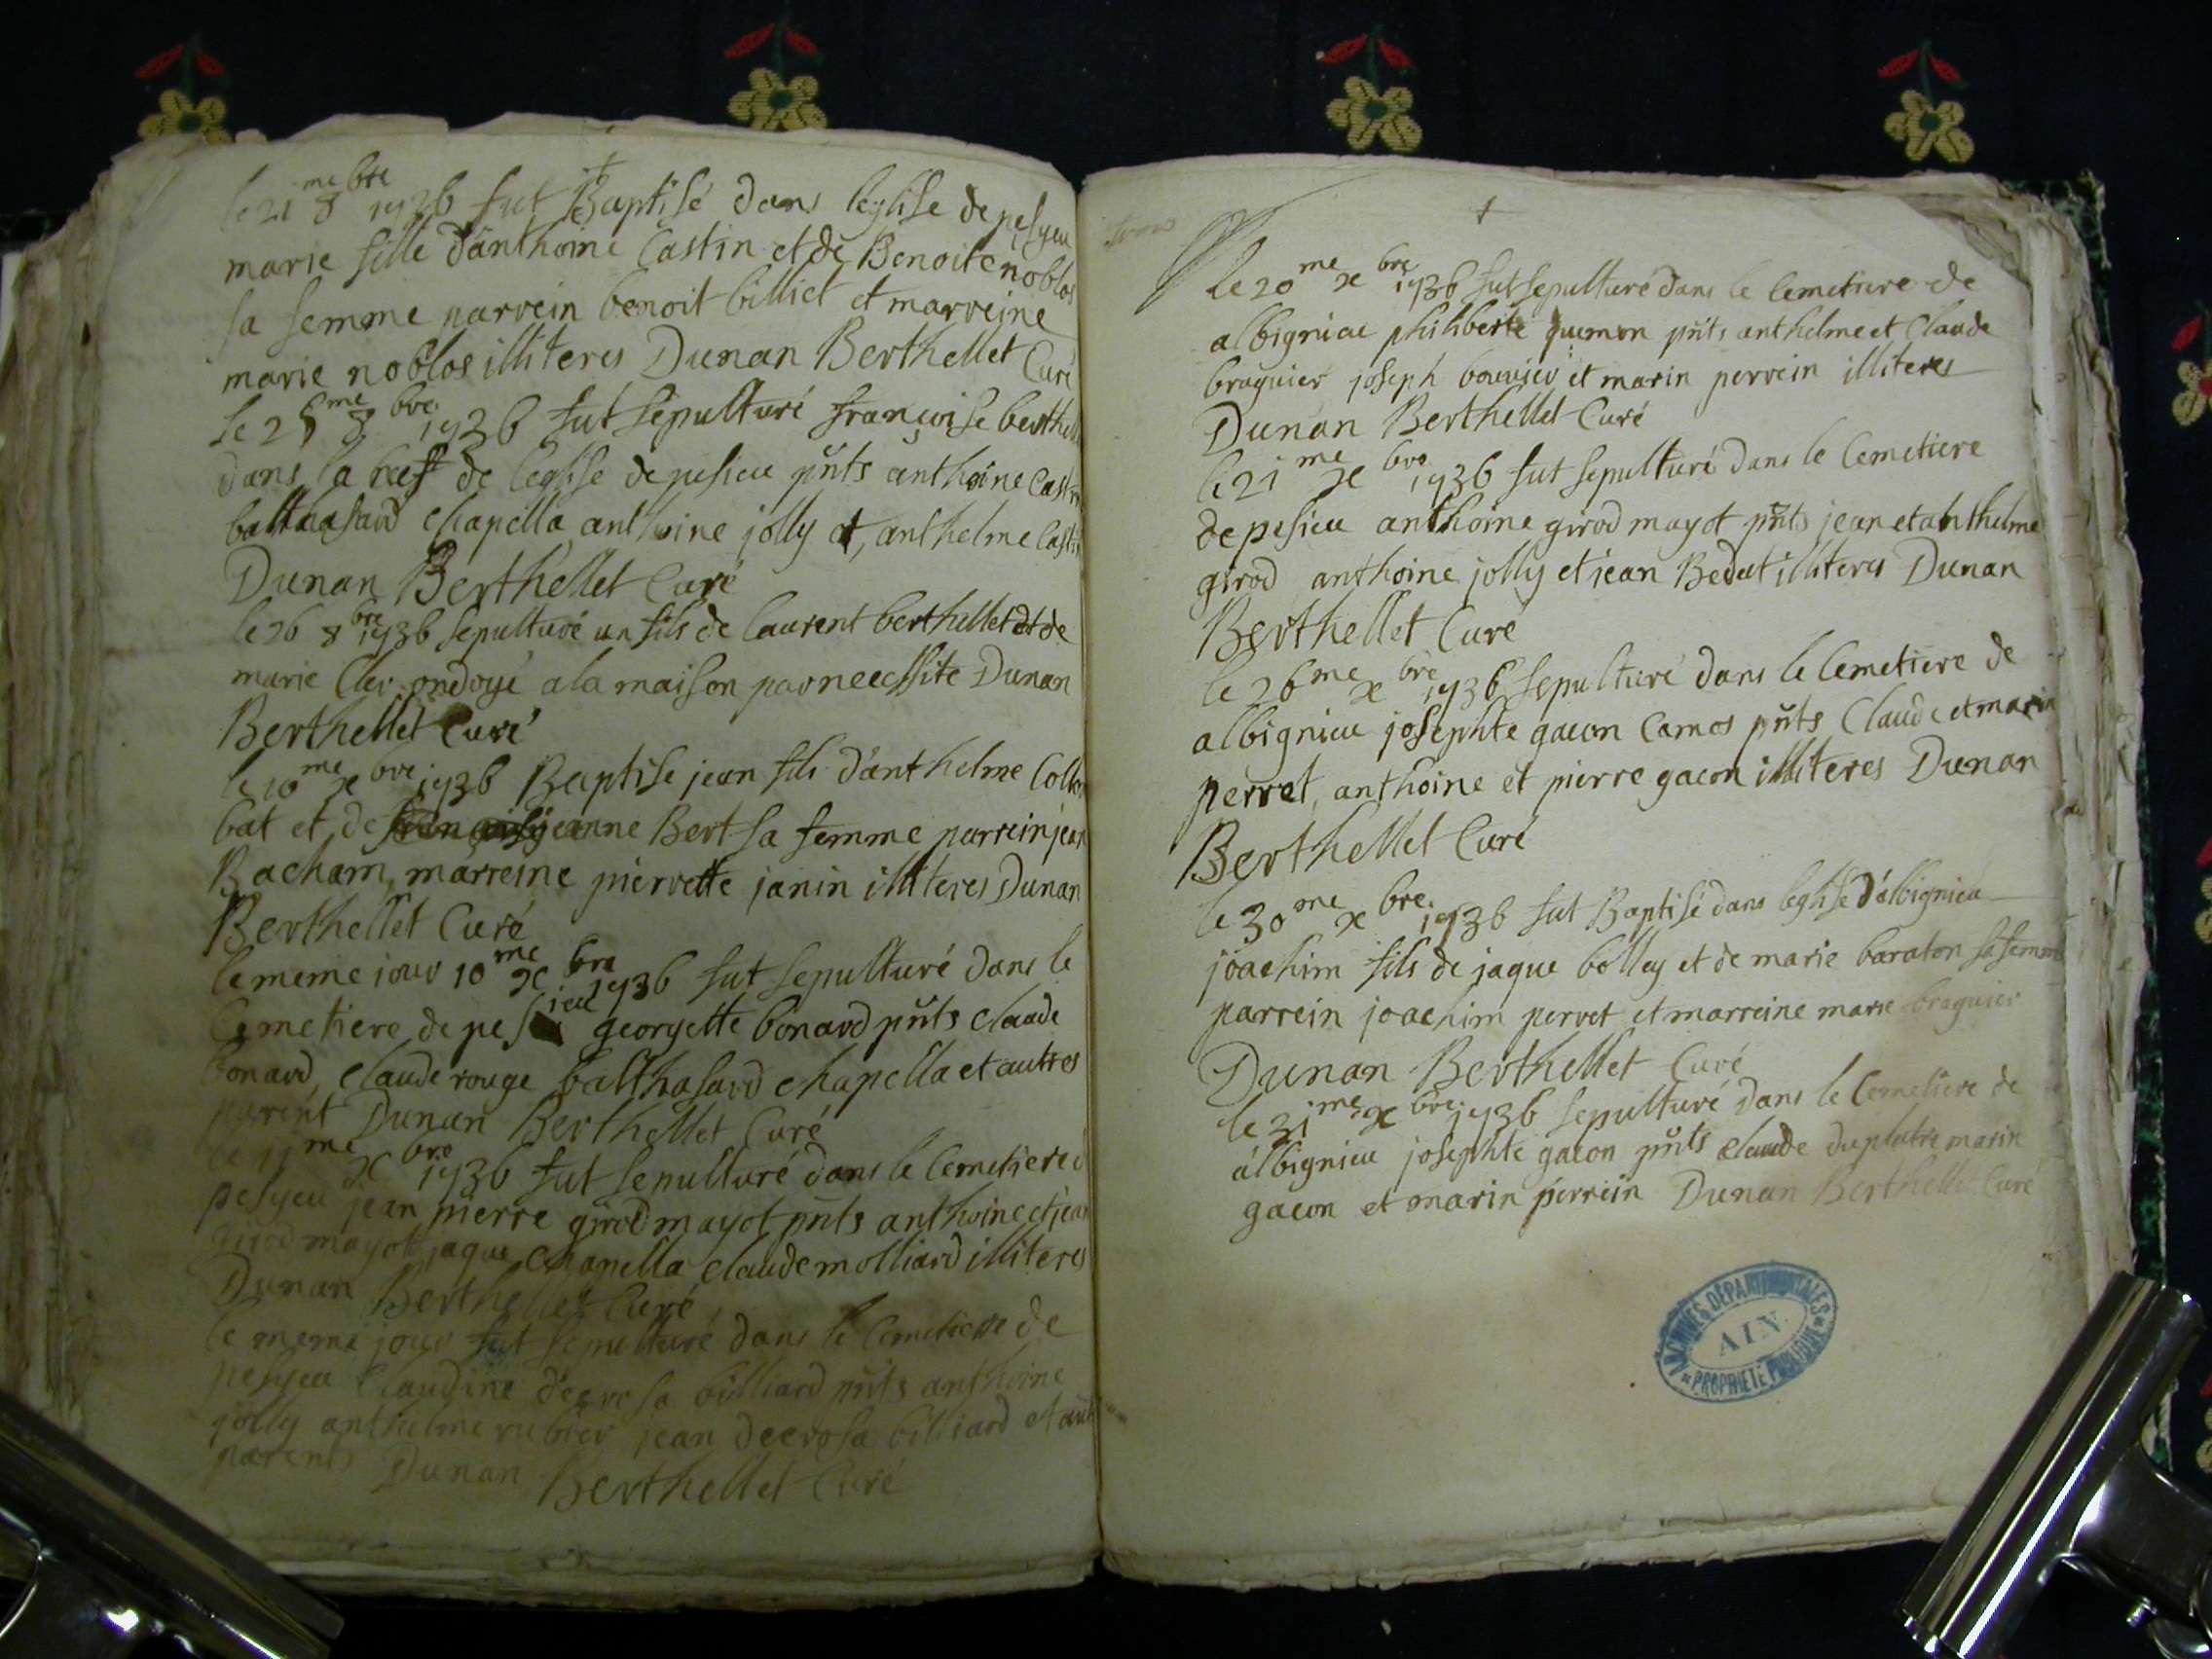 +
le 21me 8bre 1736 fut Baptisé dans leglise de pesyeu
marie fille d'anthoine Castin et de Benoite noblos
sa femme parrein benoit billiet et marreine
marie noblos illiteres Dunan Berthellet Curé
Le 25me 8bre 1736 fut sepulturé françoise berthell
dans la nef de leglise de pesieu pnts anthoine Cast
balthasard chapella anthoine jolly et, anthelme Casti
Dunan Berthellet Curé
le 26 8bre 1736 sepulturé un fils de laurent berthellet et de
marie Cler ondoyé a la maison par necessite Dunan
Berthellet Curé
le 10me xbre 1736 Baptise jean fils d'anthelme Collom
bat et de jeanne Bert sa femme parrein jean
Bacham, marreine pierrette janin illiteres Dunan
Berthellet Curé
le meme jour 10me xbre 1736 fut sepulturé dans le
Cemetiere de pesieu georgette bonard pnts claude
bonard, claude rouge balthasard chapella et autres
parent Dunan Berthellet Curé
le 11me xbre 1736 fut sepulturé dans le Cemetiere d
pesyeu jean pierre girod mayot pnts anthoine et jean
girod mayot, jaque chapella claude molliard illiteres
Dunan Berthellet Curé
le meme jour fut sepulturé dans le Cemetiere de
pesyeu Claudine decrosa billiard pnts anthoine
jolly anthelme rubier jean decrosa billiard et aut
parents Dunan Berthellet Curé
+
Le 20me xbre 1736 fut sepulturé dans le Cemetiere de
albignieu philiberte pnts anthelme et Claude
braguier joseph bouvier et marin perrein illiteres
Dunan Berthellet Curé
le 21me xbre 1736 fut sepulturé dans le Cemetiere
de pesieu anthoine girod mayot pnts jean et anthelme
girod anthoine jolly et jean Bedat illiteres Dunan
Berthellet Curé
le 26me xbre 1736 sepulturé dans le Cemetiere de
albignieu josephte gacon Camos pnts Claude et marin
perret, anthoine et pierre gacon illiteres Dunan
Berthellet Curé
le 30me xbre 1736 fut Baptisé dans leglise d'albignieu
joachim fils de jaque bolley et de marie baraton sa femme
parrein joachim perret et marreine marie braguier
Dunan Berthellet Curé
le 31me xbre 1736 sepulturé dans le Cemetiere de
albignieu josephte gacon pnts claude duplatre marin
gacon et marin perrein Dunan Berthellet Curé
ARCHIVES DÉPARTEMENTALES
AIN
PROPRIÉTÉ PUBLIQUE